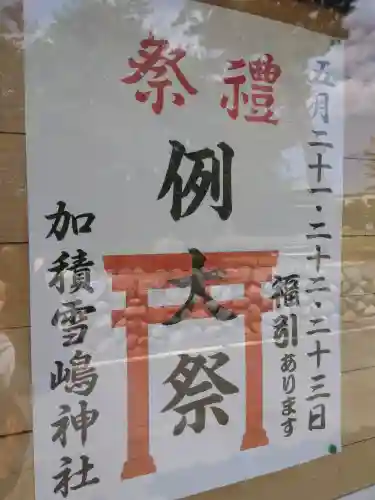 祭禮
五月二十一・二十二・二十三日
例大祭
福引あります
加積雪嶋神社